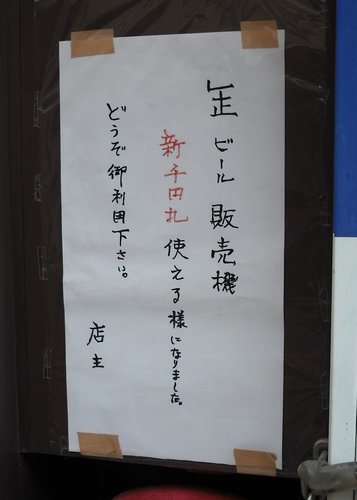 缶ビール販売機
新千円札使える様になりました。
どうぞ御利用下さい。
店主